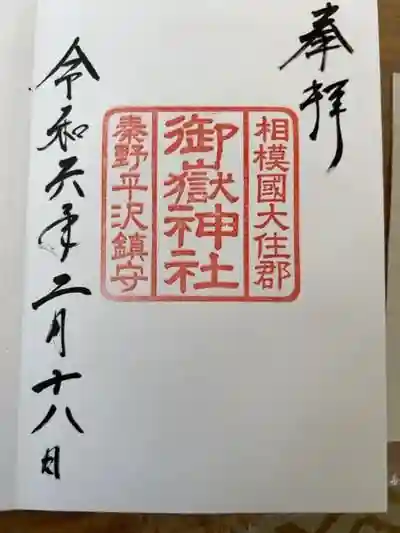 奉拝
相模國大住郡
御嶽神社
秦野平沢鎮守
令和六年二月十八日